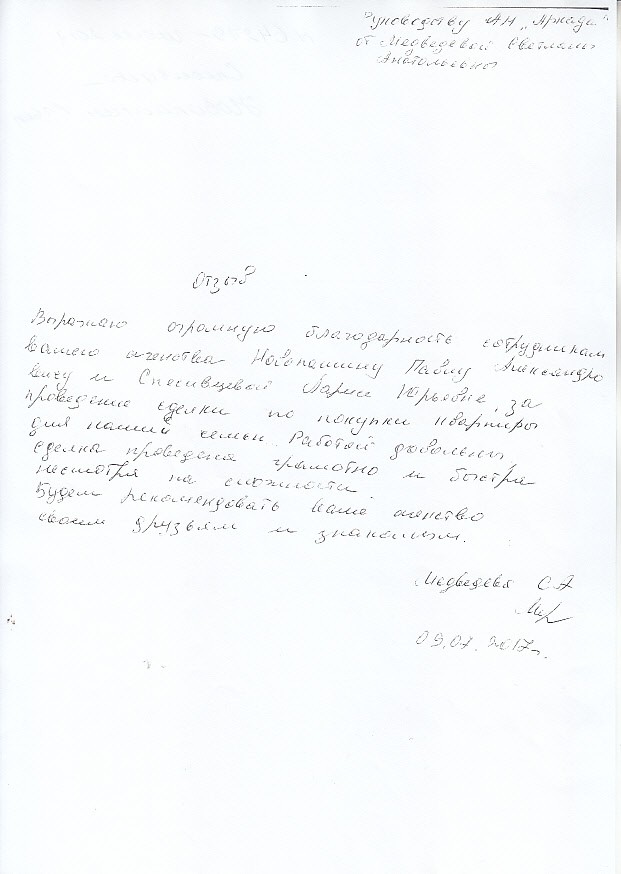 Руководству АН "Аркада"
от Медведевой Светланы
Анатольевны
Отзыв
Выражаю огромную благодарность сотрудникам
вашего агенства Новопашину Павлу Александро
вичу и Спесивцевой Ларисе Юрьевне за
проведение сделки по покупки квартиры
для нашей семьи. Работой довольны
сделка проведена грамотно и быстро
несмотря на сложности.
Будем рекомендовать ваше агенство
своим друзьям и знакомым.
Медведева С.А
09.07.2017г.